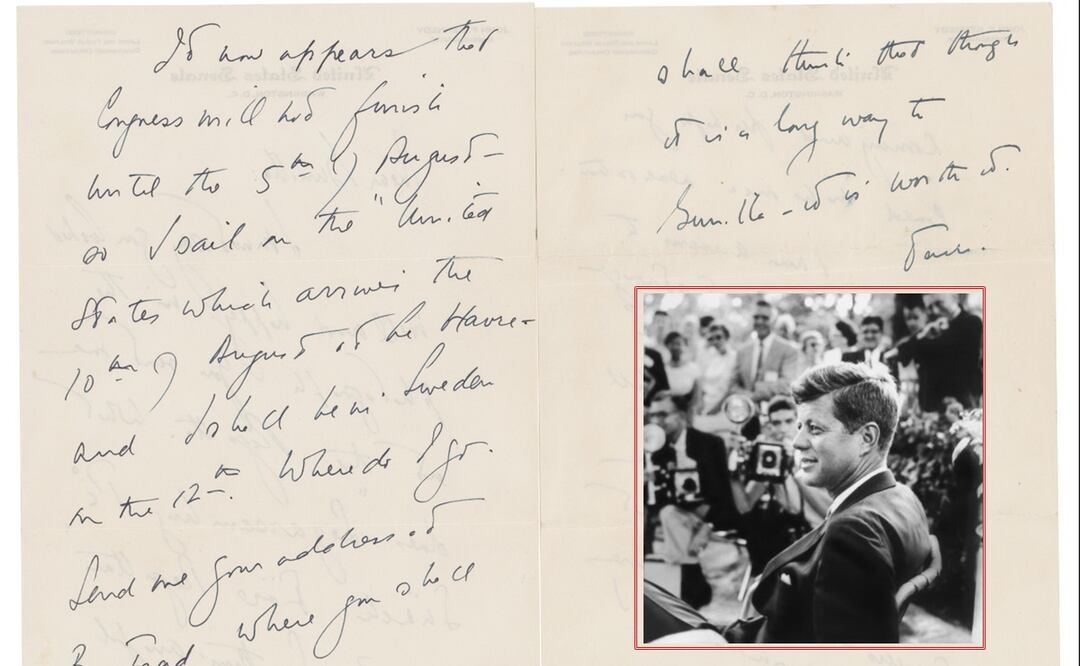 It now appears that
Congress will not finish
until the 5th of August –
so I sail on the "United
States which arrives the
10th of August at Le Havre –
and I shall be in Sweden
on the 12th. Where do I go.
Send me your address at
where you shall
shall think that though
it is a long way to
Gunilla – it is worth it.
Jack.